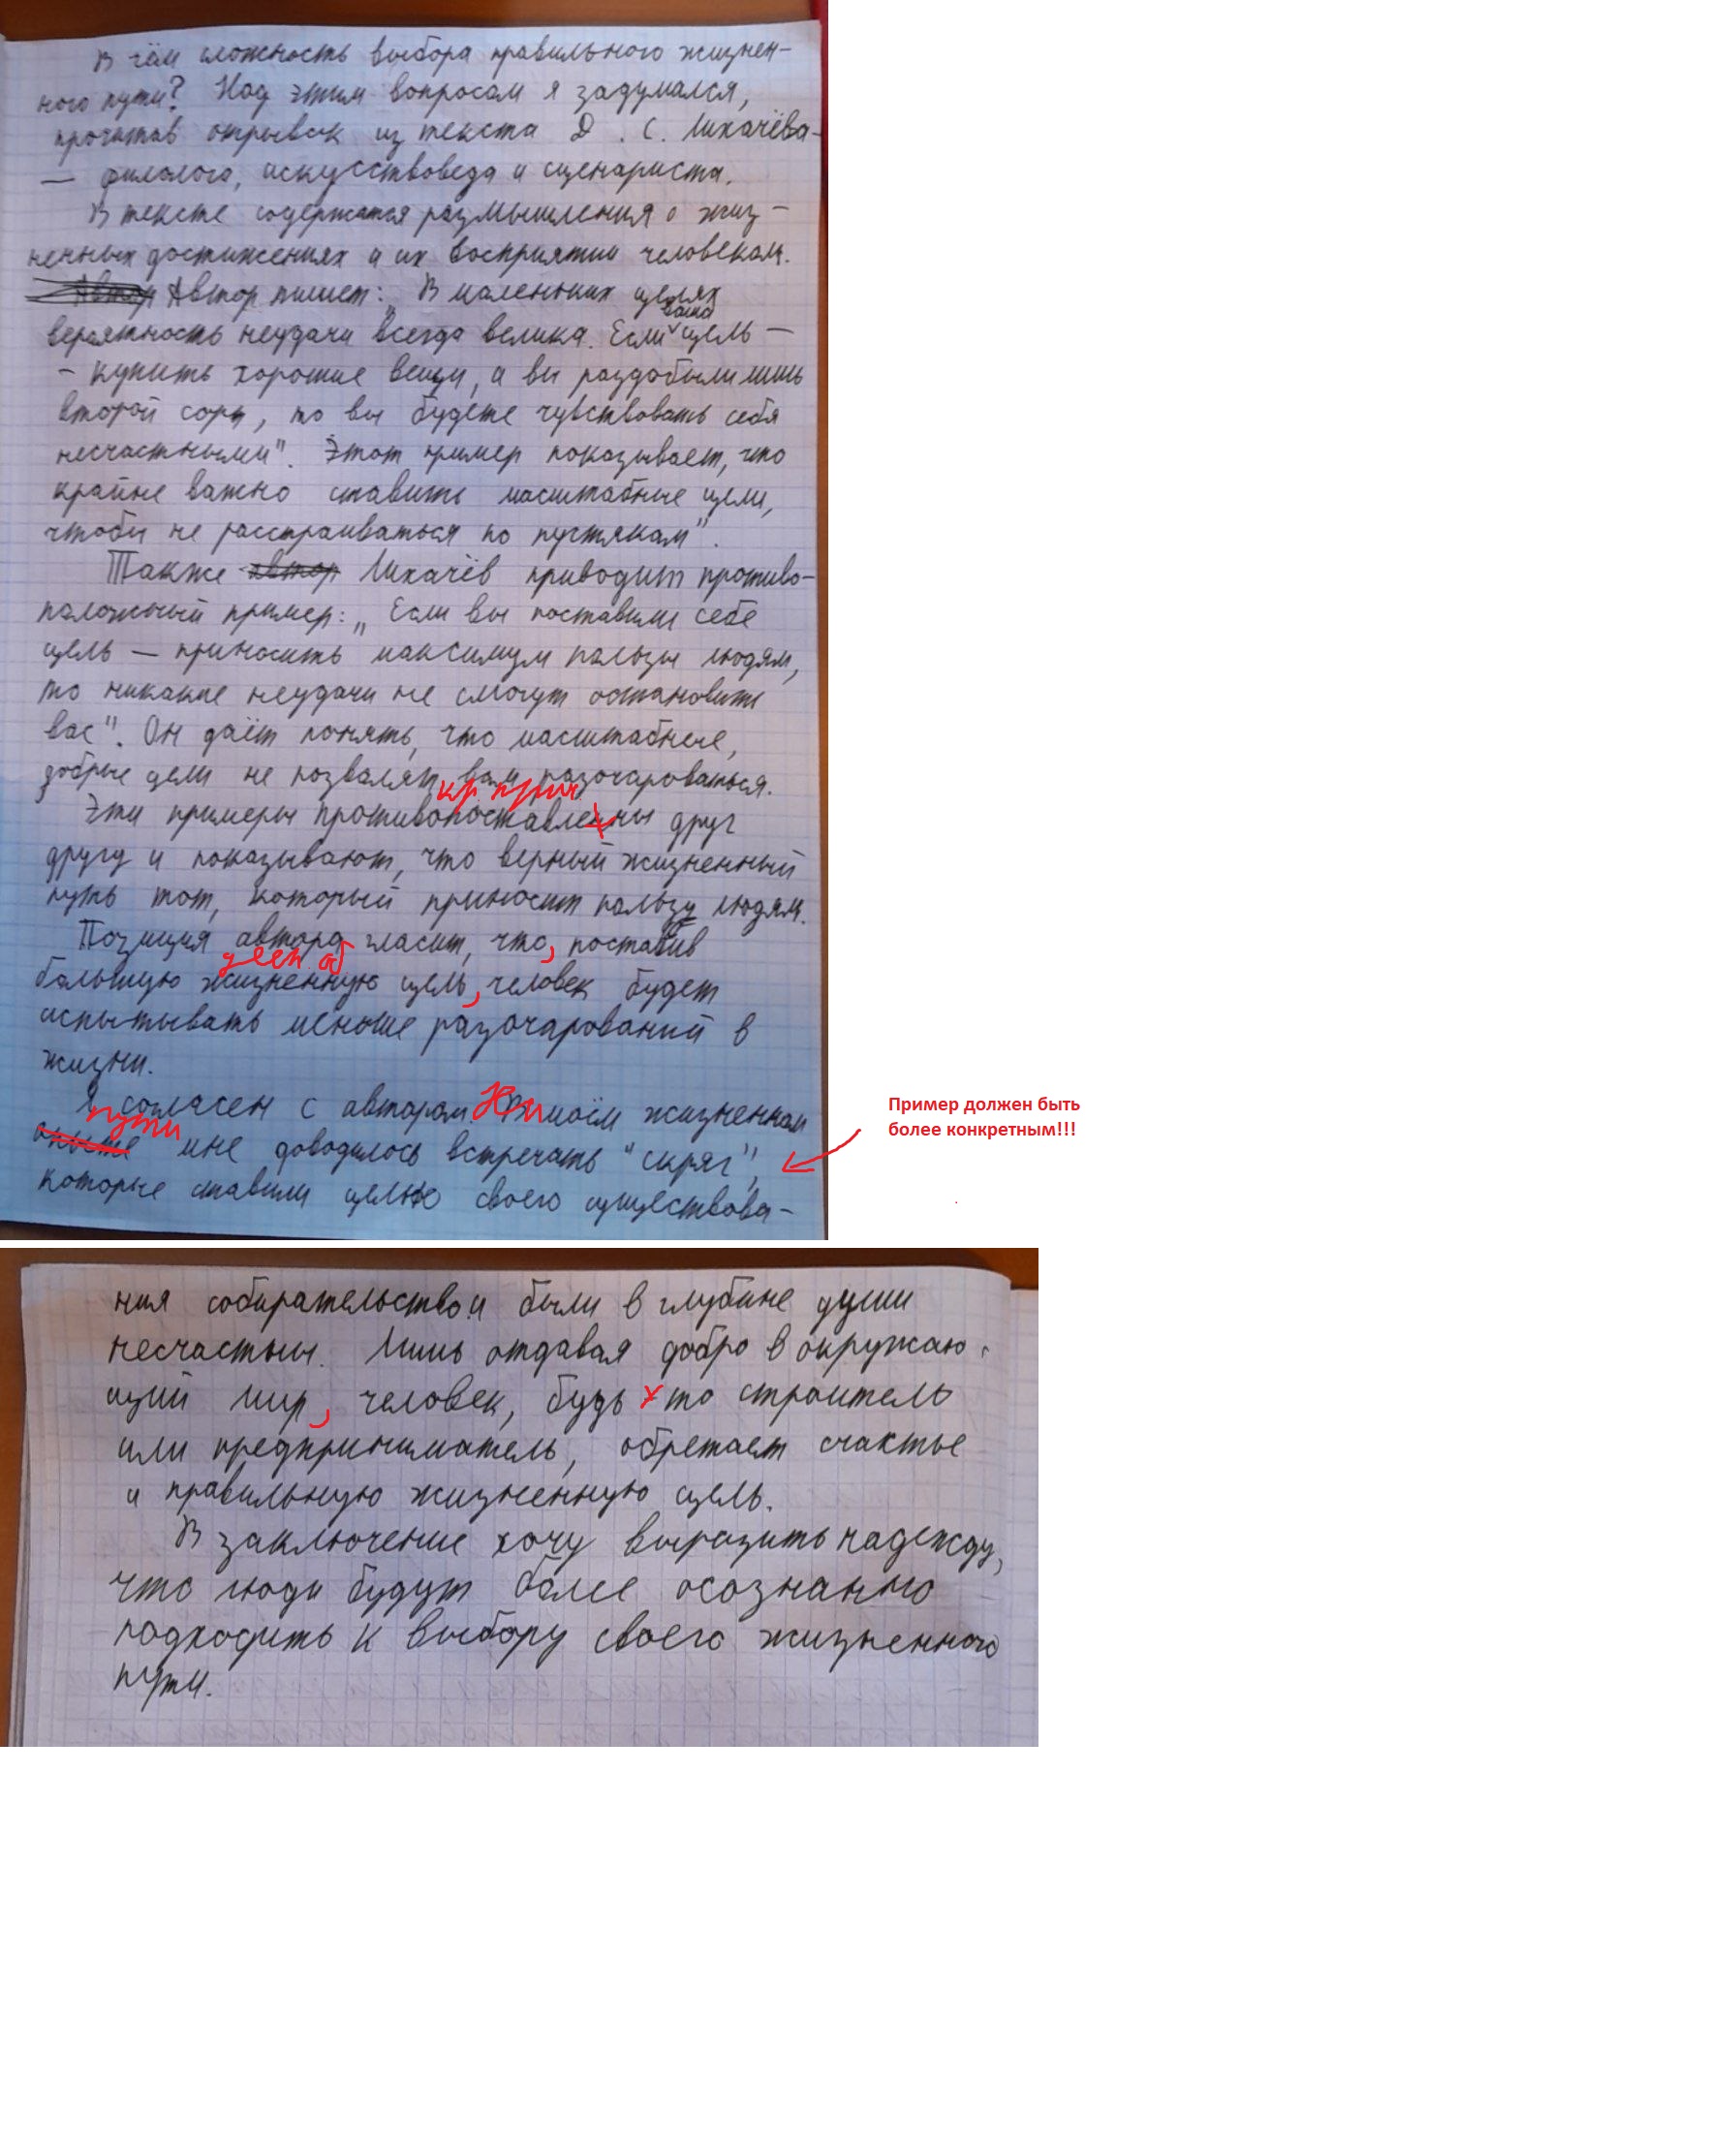 В чём сложность выбора правильного жизнен-
ного пути? Над этим вопросом я задумался,
прочитав отрывок из текста Д. С. Лихачёва-
— филолога, искусствоведа и сценариста.
В тексте содержатся размышления о жиз-
ненных достижениях и их восприятии человеком.
Автор Автор пишет: „В маленьких целях
вероятность неудачи всегда велика. Если ваша цель —
- купить хорошие вещи, а вы раздобыли лишь
второй сорт, то вы будете чувствовать себя
несчастными". Этот пример показывает, что
крайне важно ставить масштабные цели,
чтобы не расстраиваться по пустякам".
Также автор Лихачёв приводит противо-
положный пример: „Если вы поставили себе
цель — приносить максимум пользы людям,
то никакие неудачи не смогут остановить
вас". Он даёт понять, что масштабные,
добрые цели не позволят вам разочароваться.
кр прич
Эти примеры противопоставленны друг
другу и показывают, что верный жизненный
путь тот, который приносит пользу людям.
Позиция автора гласит, что, поставив
дееп. об
большую жизненную цель, человек будет
испытывать меньше разочарований в
жизни.
Я согласен с автором. На моём жизненном
пути
опыте мне доводилось встречать "скряг",
которые ставили целью своего существова-
Пример должен быть
более конкретным!!!
ния собирательство и были в глубине души
несчастны. Лишь отдавая добро в окружаю-
щий мир, человек, будь то строитель
или предприниматель, обретает счастье
и правильную жизненную цель.
В заключение хочу выразить надежду,
что люди будут более осознанно
подходить к выбору своего жизненного
пути.